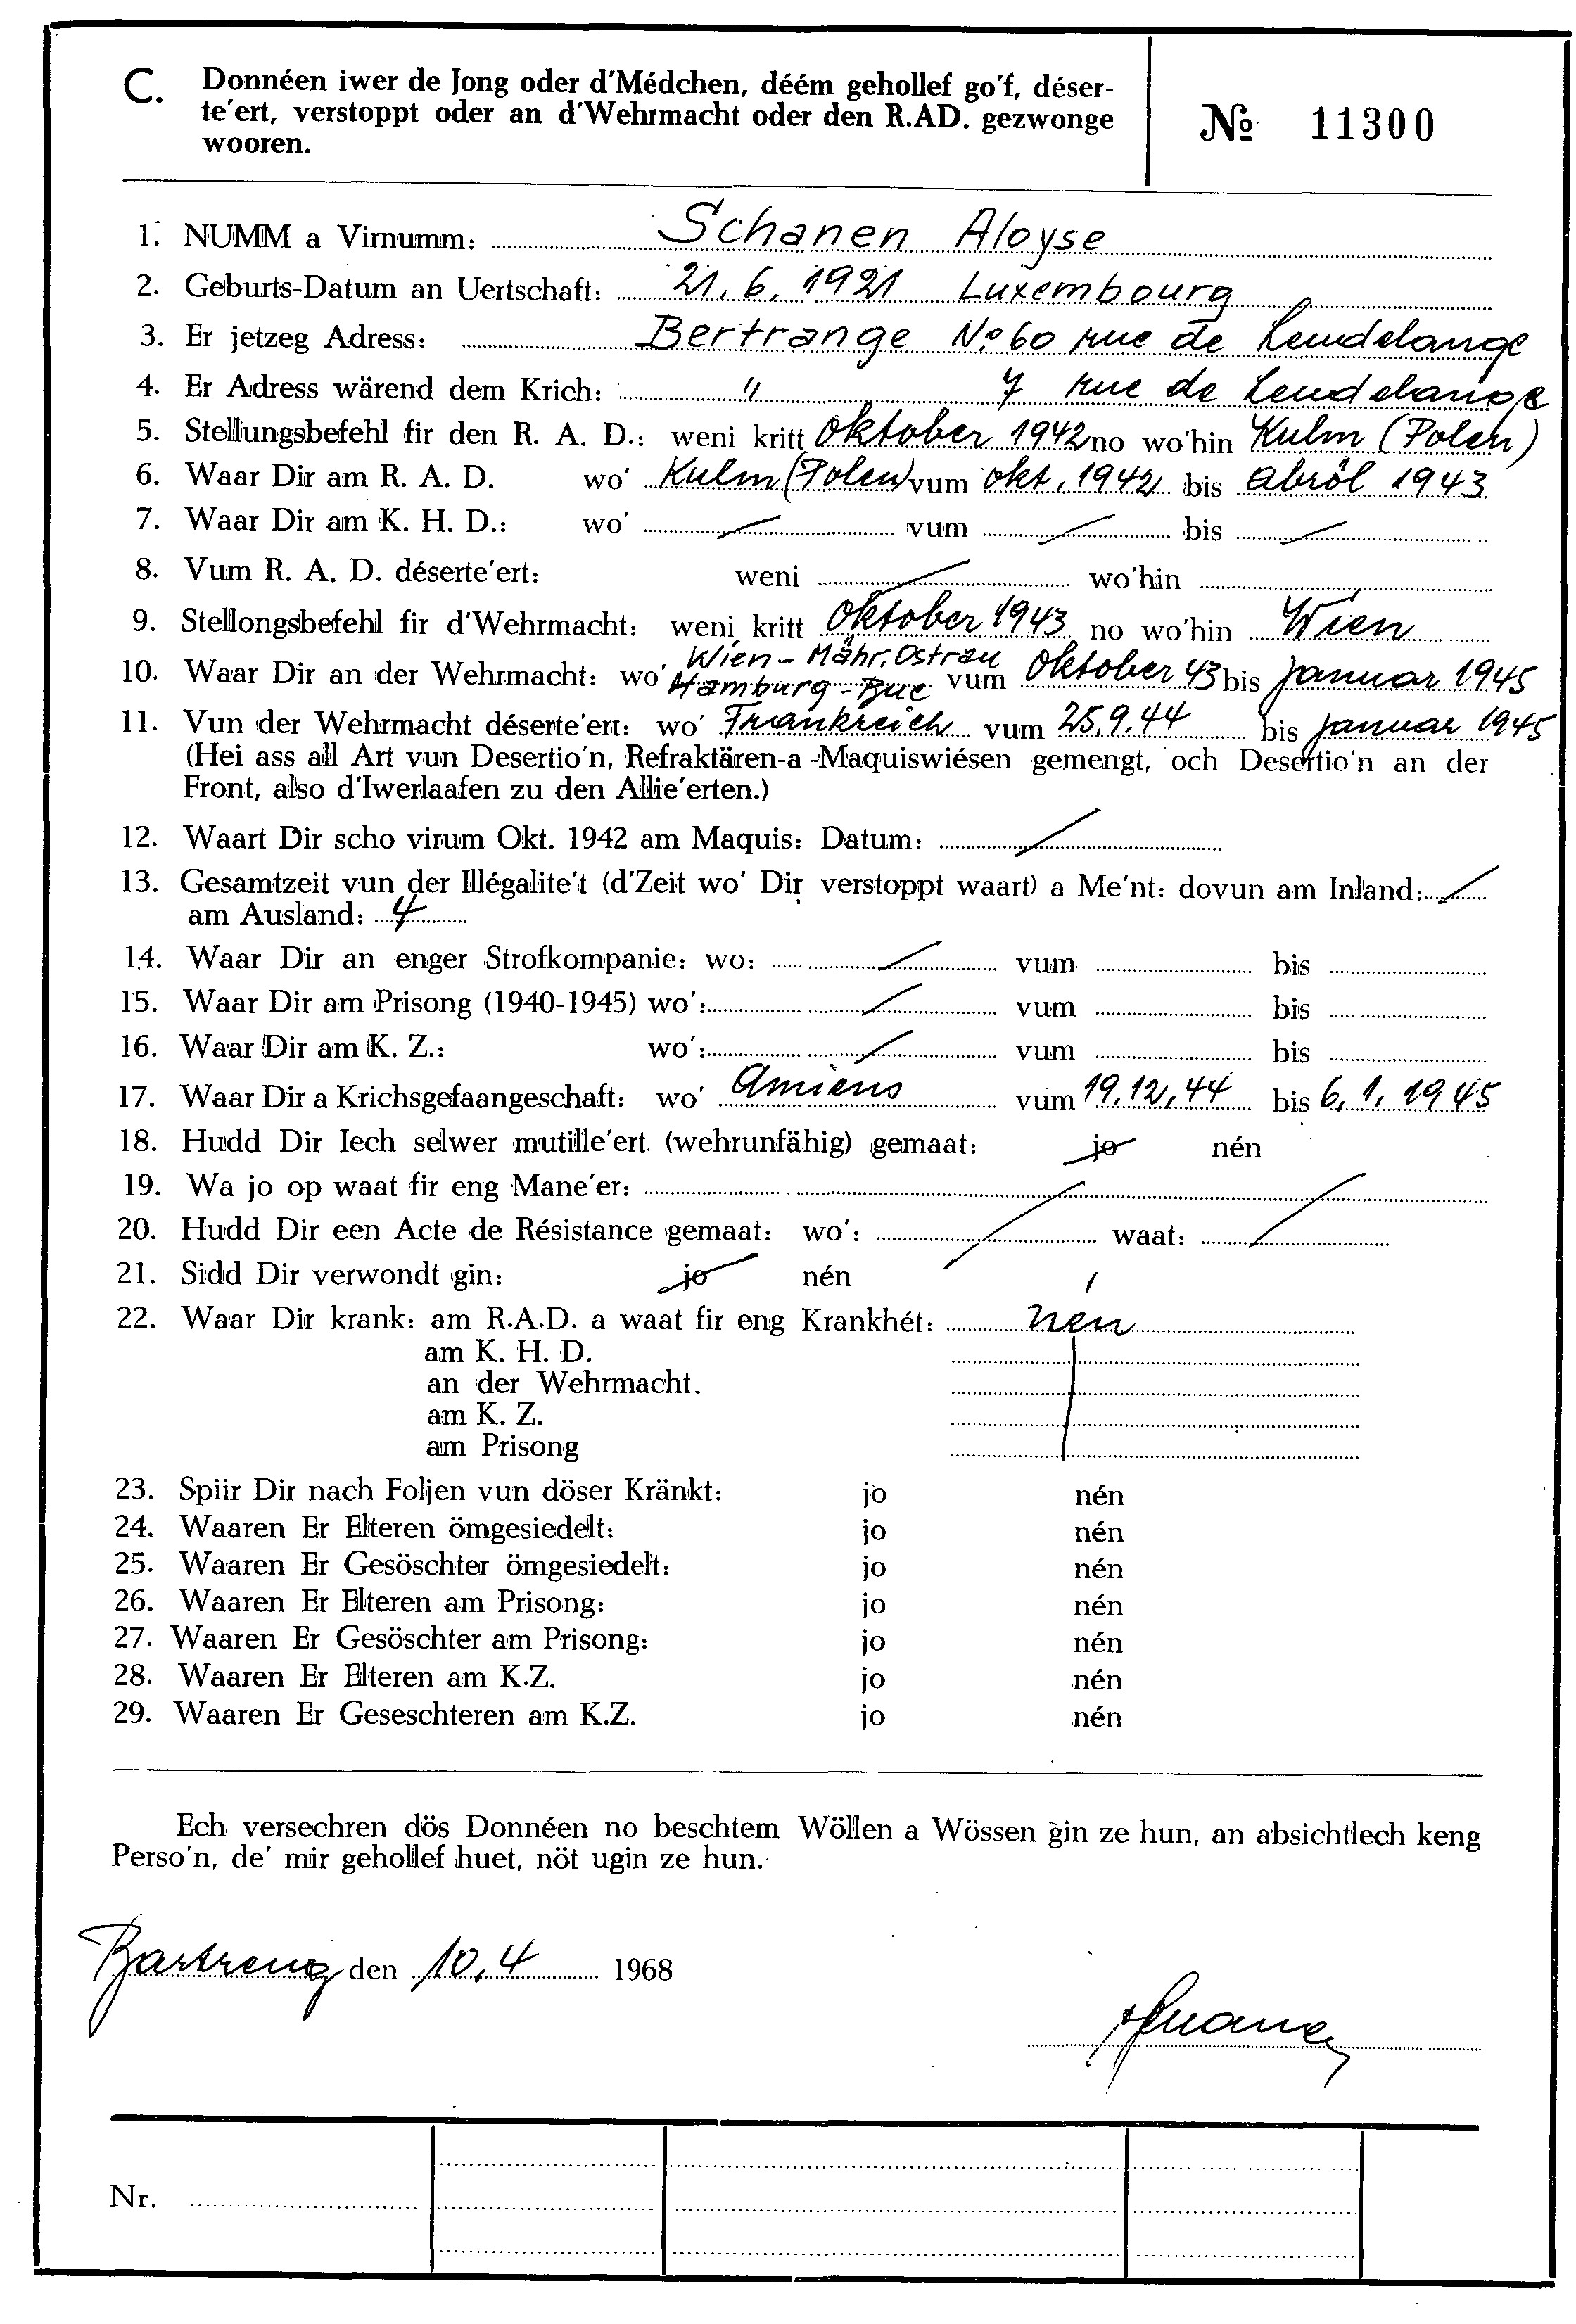 C. Donnéen iwer de Jong oder d'Médchen, déém gehollef go'f, déser-
te'ert, verstoppt oder an d'Wehrmacht oder den R.AD. gezwonge
wooren.
№ 11300
1. NUMM a Virnumm: Schanen Aloyse
2. Geburts-Datum an Uertschaft: 21.6.1921 Luxembourg
3. Er jetzeg Adress: Bertrange No 60 rue de Leudelange
4. Er Adress wärend dem Krich: " 7 rue de Leudelange
5. Stellungsbefehl fir den R. A. D.: weni kritt Oktober 1942 no wo'hin Kulm (Polen)
6. Waar Dir am R. A. D. wo' Kulm (Polen) vum Okt. 1942 bis Abröl 1943
7. Waar Dir am K. H. D.: wo' vum bis
8. Vum R. A. D. déserte'ert: weni wo'hin
9. Stellongsbefehl fir d'Wehrmacht: weni kritt Oktober 1943 no wo'hin Wien
10. Waar Dir an der Wehrmacht: wo' Wien - Mähr. Ostrau Hamburg - Buc vum Oktober 43 bis Januar 1945
11. Vun der Wehrmacht déserte'ert: wo' Frankreich vum 25.9.44 bis Januar 1945
(Hei ass all Art vun Desertio'n, Refraktären-a-Maquiswiésen gemengt, och Desertio'n an der
Front, also d'Iwerlaafen zu den Allie'erten.)
12. Waart Dir scho virum Okt. 1942 am Maquis: Datum:
13. Gesamtzeit vun der Illégalite't (d'Zeit wo' Dir verstoppt waart) a Me'nt: dovun am Inland:
am Ausland: 4
14. Waar Dir an enger Strofkompanie: wo: vum bis
15. Waar Dir am Prisong (1940-1945) wo': vum bis
16. Waar Dir am K. Z.: wo': vum bis
17. Waar Dir a Krichsgefaangeschaft: wo' Amiens vum 19.12.44 bis 6.1.1945
18. Hudd Dir Iech selwer mutille'ert (wehrunfähig) gemaat: jo nén
19. Wa jo op waat fir eng Mane'er:
20. Hudd Dir een Acte de Résistance gemaat: wo': waat:
21. Sidd Dir verwondt gin: jo nén
22. Waar Dir krank: am R.A.D. a waat fir eng Krankhét: nén
am K. H. D.
an der Wehrmacht.
am K. Z.
am Prisong
23. Spiir Dir nach Foljen vun döser Kränkt: jo nén
24. Waaren Er Elteren ömgesiedelt: jo nén
25. Waaren Er Gesöschter ömgesiedelt: jo nén
26. Waaren Er Elteren am Prisong: jo nén
27. Waaren Er Gesöschter am Prisong: jo nén
28. Waaren Er Elteren am K.Z. jo nén
29. Waaren Er Geseschteren am K.Z. jo nén
Ech versechren dös Donnéen no beschtem Wöllen a Wössen gin ze hun, an absichtlech keng
Perso'n, de' mir gehollef huet, nöt ugin ze hun.
Bartreng den 10.4 1968
Nr.